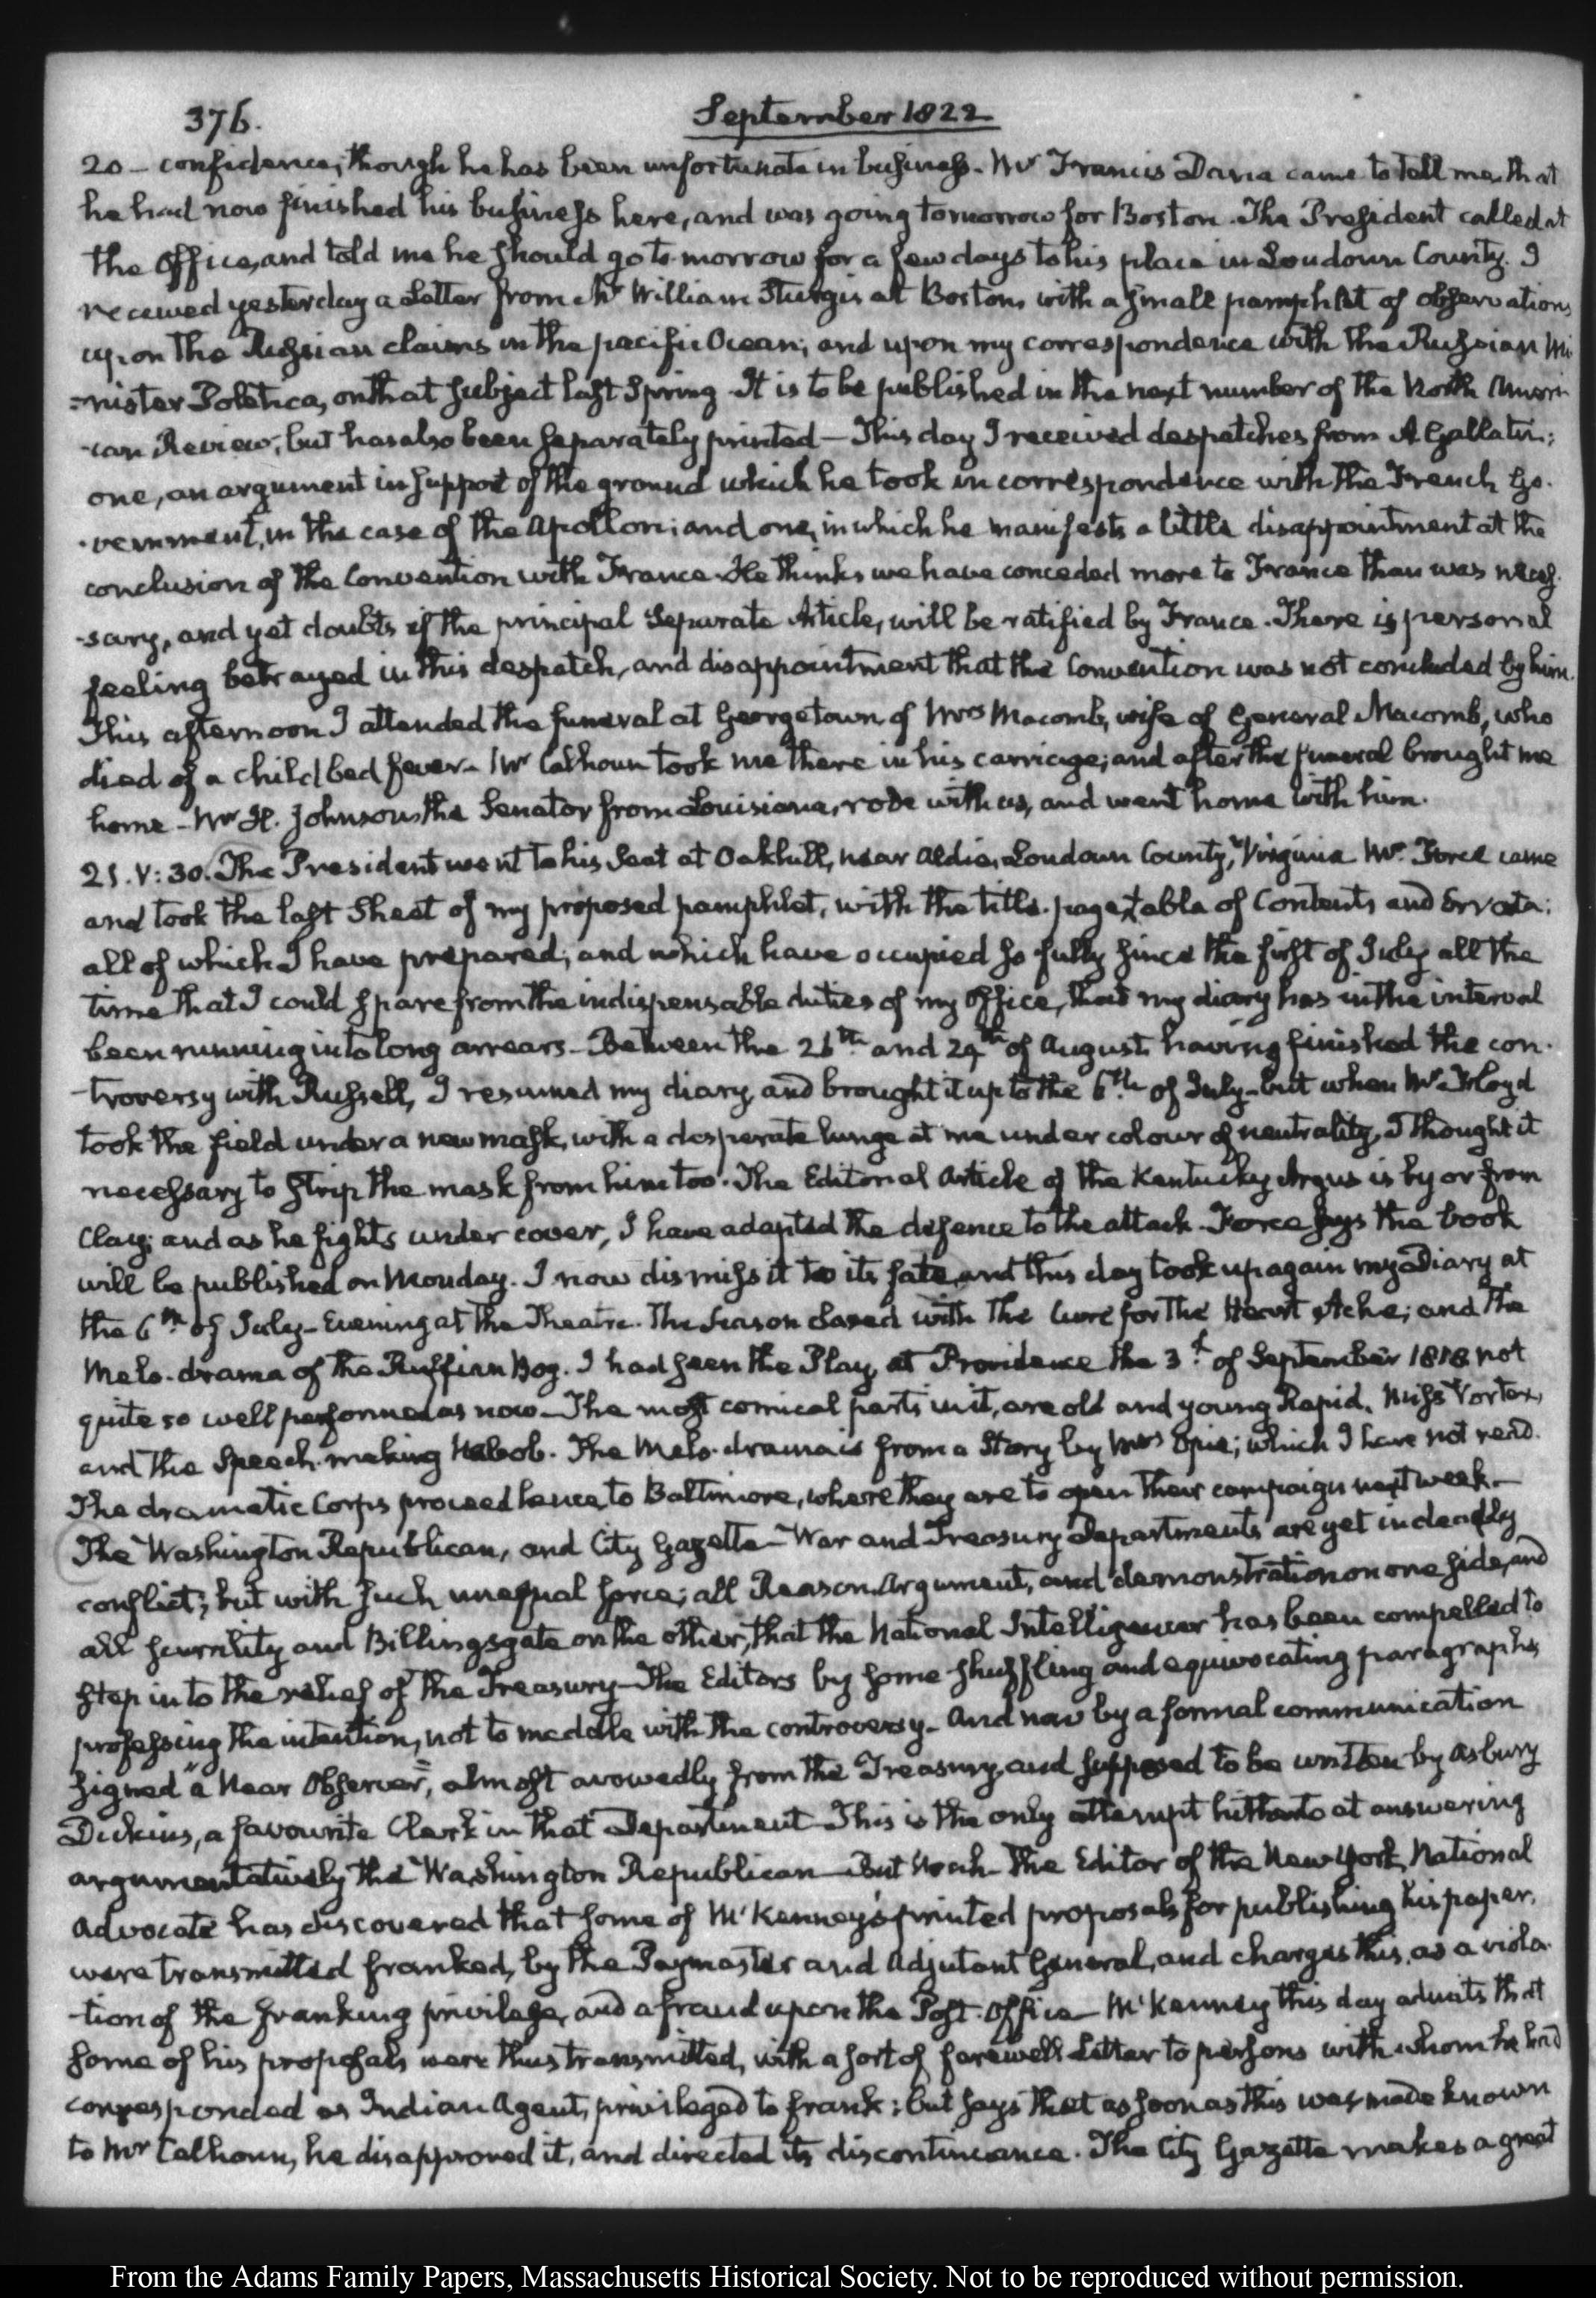 376.
September 1822
20 - confidence, though he has been unfortunate in business. Mr Francis Dana came to tell me that
he had now finished his business here, and was going tomorrow for Boston. The President called at
the Office, and told me he should go to-morrow for a few days to his place in Loudoun County. I
received yesterday a Letter from Mr William Sturgis at Boston, with a small pamphlet of observations
upon the Russian claims in the pacific Ocean; and upon my correspondence with the Russian Mi
-nister Poletica, on that subject last Spring. It is to be published in the next number of the North Ameri-
-can Review; but has also been separately printed - This day I received despatches from A. Gallatin;
one, an argument in support of the ground which he took in correspondence with the French Go-
-vernment, in the case of the Apollon; and one, in which he manifests a little disappointment at the
conclusion of the Convention with France. He thinks we have conceded more to France than was neces-
-sary, and yet doubts if the principal Separate Article, will be ratified by France. There is personal
feeling betrayed in this despatch, and disappointment that the Convention was not concluded by him.
This afternoon I attended the funeral at Georgetown of Mrs Macomb, wife of General Macomb, who
died of a child bed fever - Mr Calhoun took me there in his carriage; and after the funeral brought me
home - Mr H. Johnson the Senator from Louisiana, rode with us, and went home with him.
21. V:30. The President went to his Seat at Oakhill, near Aldie, Loudoun County, Virginia. Mr. Force came
and took the last Sheet of my proposed pamphlet, with the title-page, table of Contents and Errata;
all of which I have prepared; and which have occupied so fully since the first of July all the
time that I could spare from the indispensable duties of my Office, that my diary has in the interval
been running into long arrears - Between the 26th and 29th of August, having finished the con-
troversy with Russell, I resumed my diary, and brought it up to the 6th of July - but when Mr Floyd
took the field under a new mask, with a desperate lunge at me under colour of neutrality, I thought it
necessary to strip the mask from him too. The Editorial Article of the Kentucky Argus is by or from
Clay; and as he fights under cover, I have adapted the defence to the attack. Force says the book
will be published on Monday. I now dismiss it to its fate, and this day took up again my Diary at
the 6th of July - Evening at the Theatre. The Season closed with The Cure for the Heart Ache; and the
Melo-drama of the Ruffian Boy. I had seen the Play, at Providence the 3d of September 1818 not
quite so well performed as now - The most comical parts in it, are old and young Rapid, Miss Vortex,
and the Speech-making Nabob. The Melo-drama is from a Story by Mrs Opie; which I have not read.
The dramatic Corps proceed hence to Baltimore, where they are to open their campaign next week -
The Washington Republican, and City Gazette - War and Treasury Departments are yet in deadly
conflict; but with such unequal force; all Reason, Argument, and demonstration on one side, and
all scurrility and Billingsgate on the other, that the National Intelligencer has been compelled to
step in to the relief of the Treasury - The Editors by some shuffling and equivocating paragraphs
professing the intention, not to meddle with the controversy - And now by a formal communication
signed "a Near Observer", almost avowedly from the Treasury, and supposed to be written by Asbury
Dickins, a favourite Clerk in that Department - This is the only attempt hitherto at answering
argumentatively the Washington Republican - But Noah - the Editor of the New York National
Advocate has discovered that some of McKenney's printed proposals for publishing his paper,
were transmitted franked, by the Paymaster and Adjutant General, and charges this, as a viola-
-tion of the franking privilege, and a fraud upon the Post-Office - McKenney this day admits that
some of his proposals were thus transmitted, with a sort of farewell Letter to persons with whom he had
corresponded as Indian Agent, privileged to frank; but says that as soon as this was made known
to Mr Calhoun, he disapproved it, and directed its discontinuance. The City Gazette makes a great
From the Adams Family Papers, Massachusetts Historical Society. Not to be reproduced without permission.